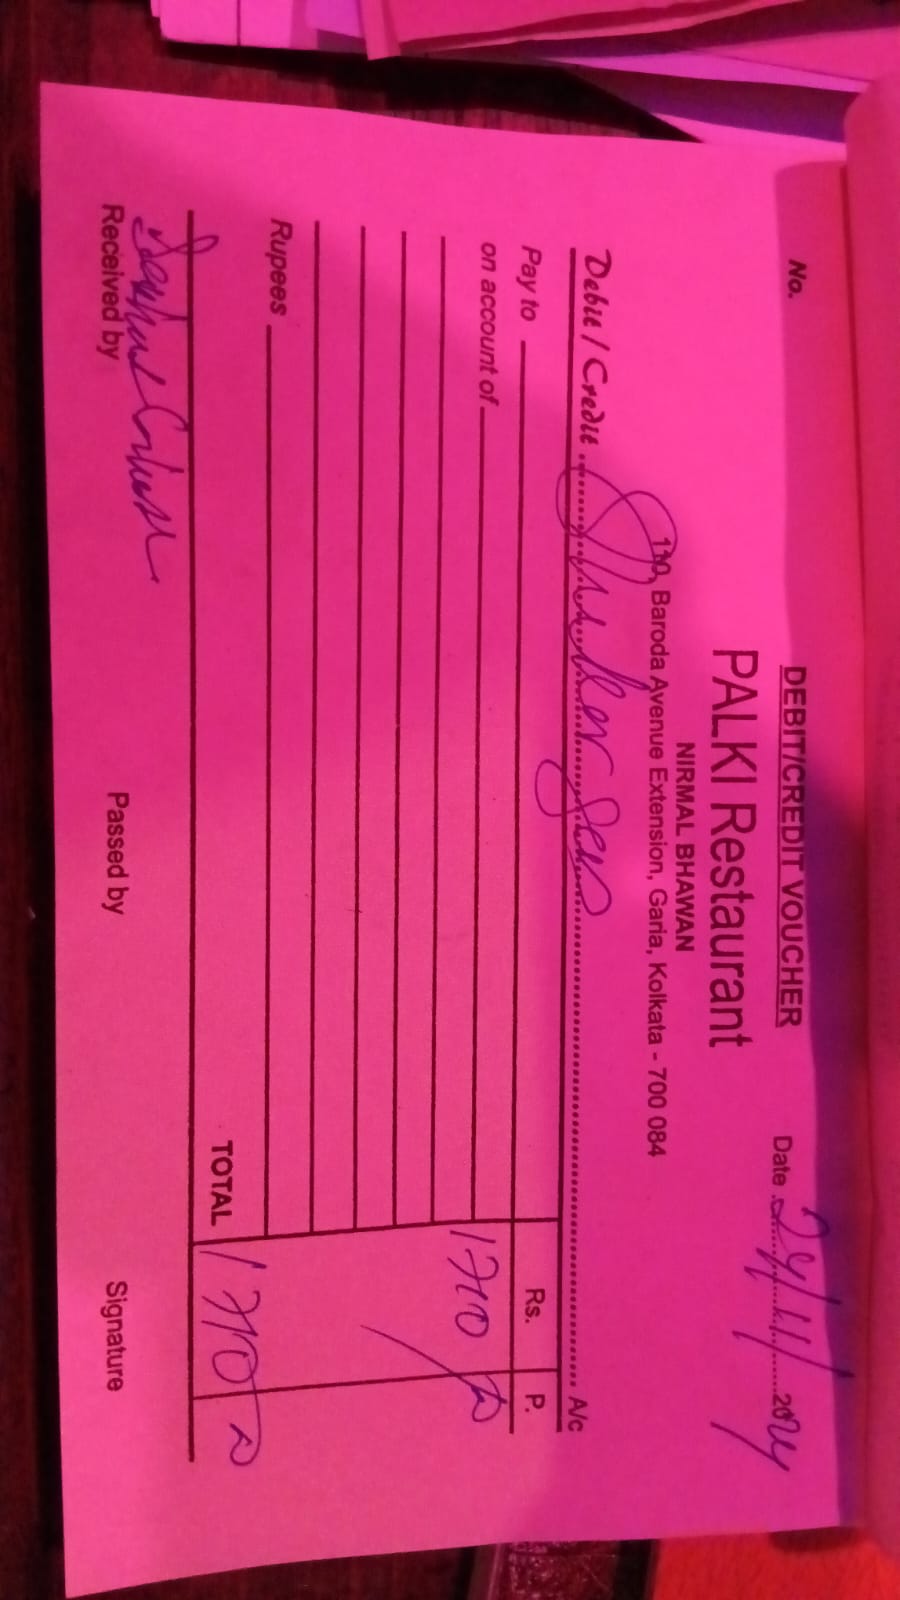 DEBIT/CREDIT VOUCHER
No. Date 24/11/2024
PALKI Restaurant
NIRMAL BHAWAN
110, Baroda Avenue Extension, Garia, Kolkata - 700 084
Debit / Credit A/c
Pay to Rs. P.
on account of 1710
Rupees
TOTAL 1710
Received by Passed by Signature